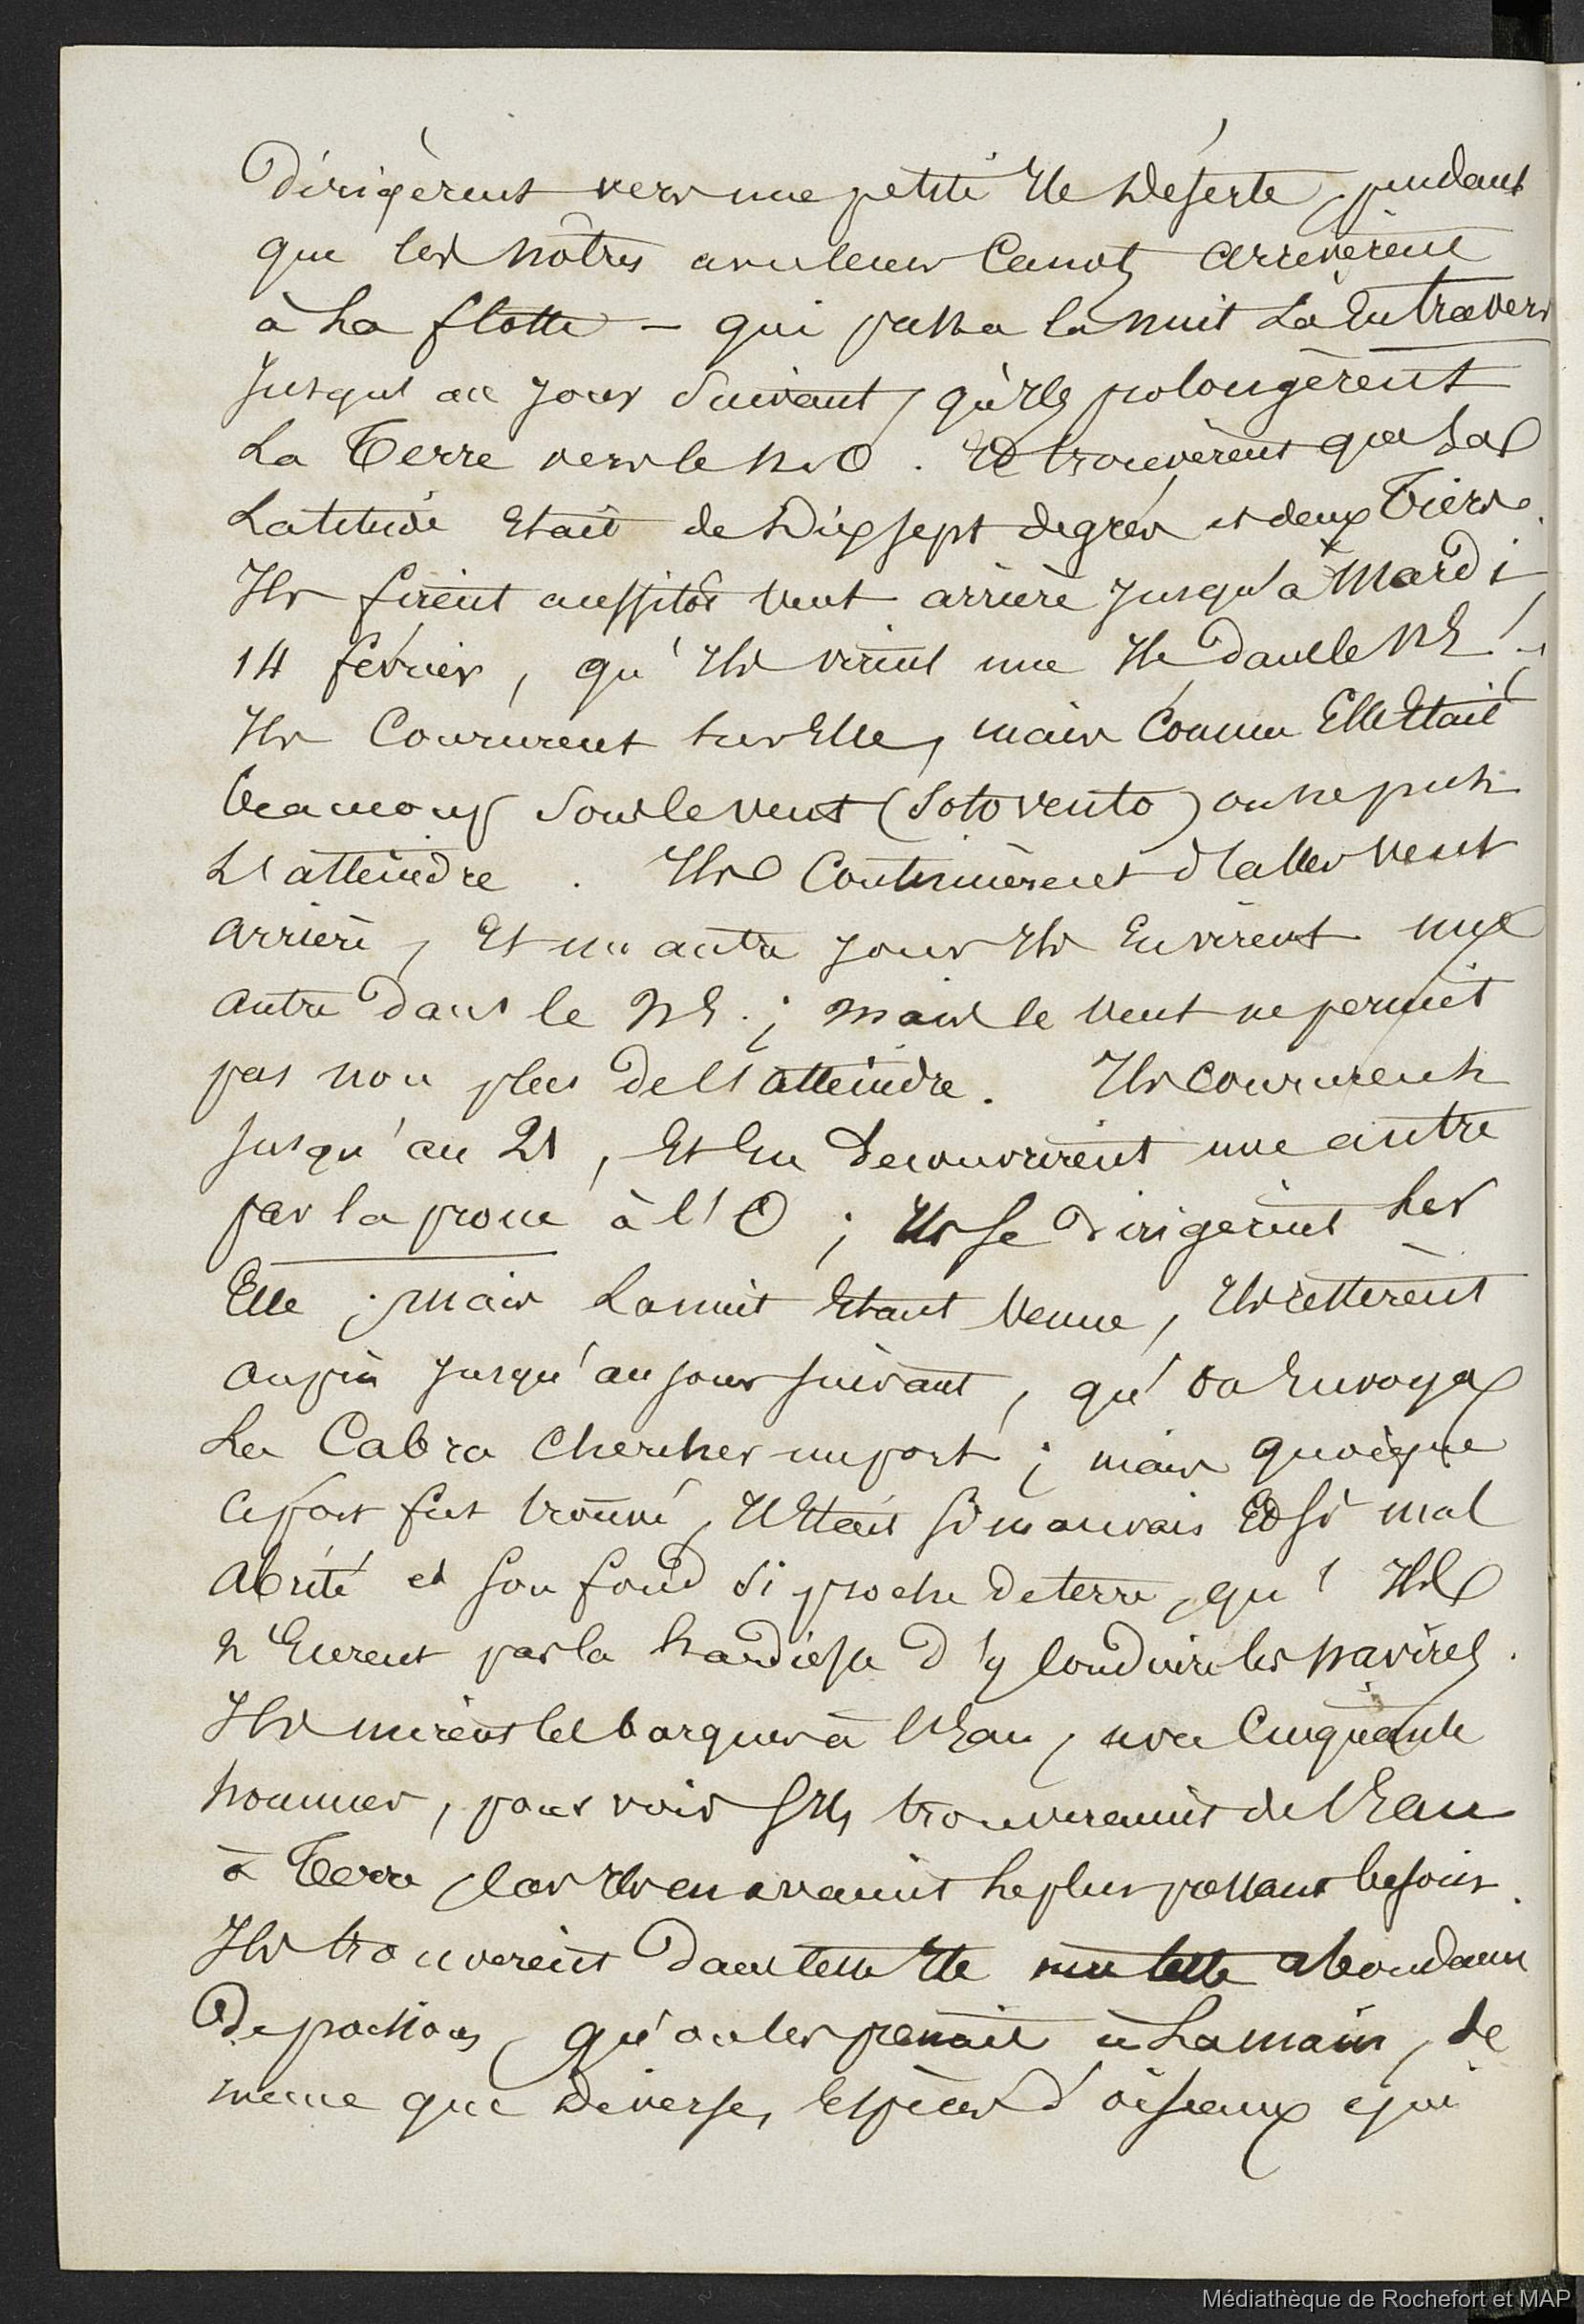 Dirigèrent vers une petite Ile Déserte, pendant
que les nôtres avec leurs Canots arrivèrent
à La flotte — qui passa la nuit Là En travers
Jusqu'au Jour Suivant, qu'Ils prolongèrent
La Terre vers le N.O. Et trouvèrent que Sa
Latitude Etait de Dix sept degrés et deux Tiers.
Ils firent aussitôt Vent arrière Jusqu'à Mardi
14 février, qu'Ils virent une Ile Dans le NE.;
Ils Coururent sur Elle, mais Comme Elle Etait
beaucoup Sous le vent (Sotovento) on ne put
L'atteindre. Ils Continuèrent d'aller Vent
arrière, Et un autre Jour Ils En virent une
autre Dans le NE.; mais le Vent ne permit
pas non plus De l'atteindre. Ils coururent
Jusqu'au 21, Et En Découvrirent une autre
par la proue à l'O; Ils se Dirigèrent sur
Elle; mais La nuit Etant Venue, Ils restèrent
au pia Jusqu'au jour suivant, qu'on Envoya
La Cabra Chercher un port; mais quoique
Ce port fut trouvé, Il Etait si mauvais Et si mal
Abrité et son fond si proche De terre, qu'Ils
n'Eurent pas la hardiesse D'y Conduire les navires.
Ils mirent les barques à l'Eau, avec Cinquante
hommes, pour voir s'Ils trouveraient de l'Eau
à Terre, Car Ils en avaient le plus pressant besoin.
Ils trouverent Dans cette Ile une telle abondance
De poissons, qu'on les prenait à La main, de
meme que Diverses Espèces d'oiseaux qui
Médiathèque de Rochefort et MAP